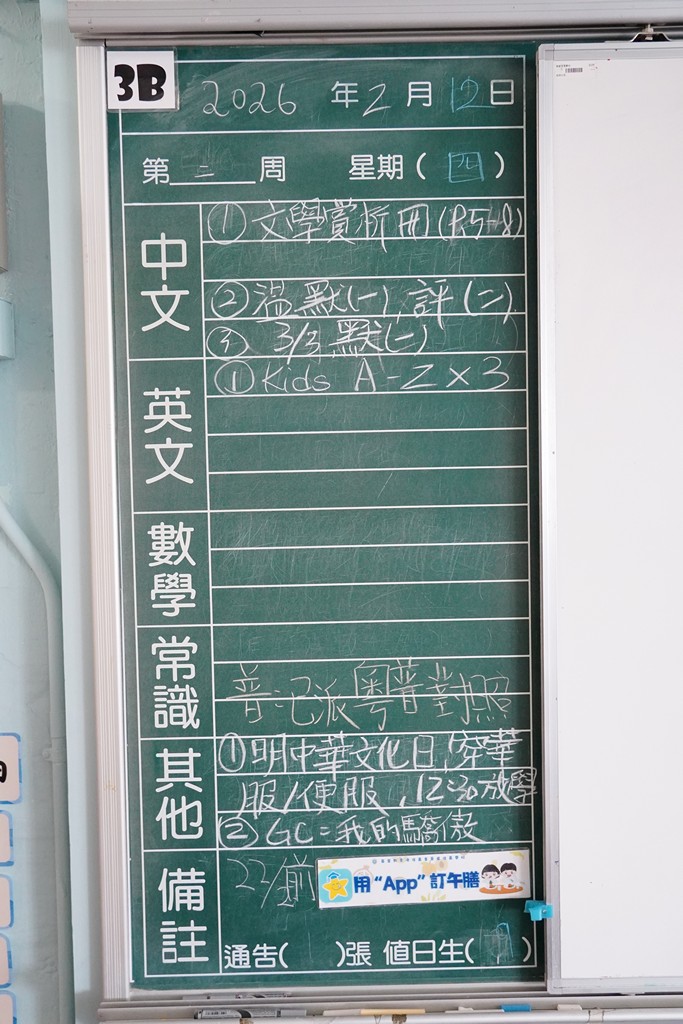 3B 2026年2月12日
第二周 星期(四)
中文
①文學賞析冊(P.5-8)
②溫默(一),評(二),
③3/3默(一)
英文
①Kids A-Z×3
數學
常識
普:已派粵普對照
其他
①明中華文化日,穿華
服/便服,12:30放學
②GC=我的驕傲
備註
23/前
用"App"訂午膳
通告( )張 值日生( )